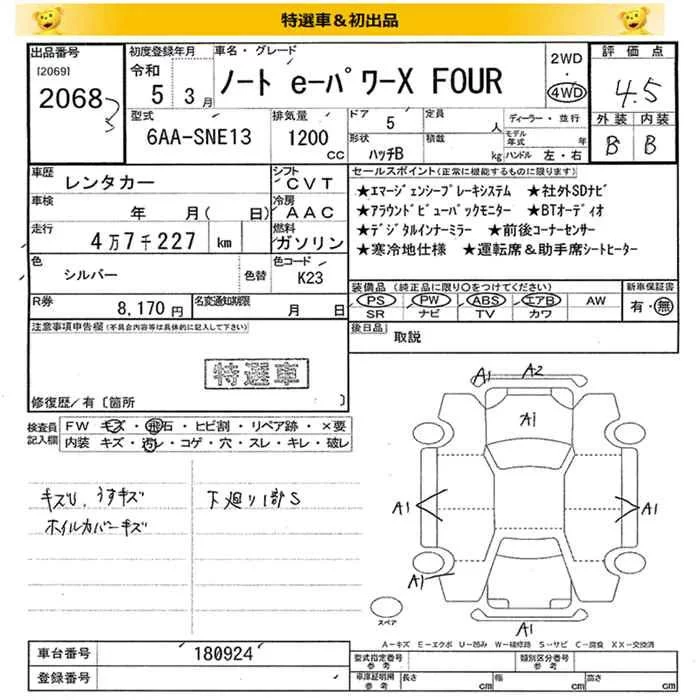 特選車&初出品
出品番号
[2069]
2068
初度登録年月
令和
5 3月
車名・グレード
ノート e-パワーX FOUR
2WD
・
4WD
評価点
4.5
外装 内装
B B
型式
6AA-SNE13
排気量
1200
CC
ドア 5
形状
ハッチB
定員
人
積載
kg
ディーラー・並行
モデル年式 年
ハンドル 左・右
車歴
レンタカー
シフト
CVT
車検
年 月( 日)
冷房
AAC
走行
4万7千227 km
燃料
ガソリン
色
シルバー
色替
色コード
K23
R券
8,170 円
名変通知期限
月 日
セールスポイント(正常に機能するものに限ります)
★エマージェンシーブレーキシステム ★社外SDナビ
★アラウンドビュー・バックモニター ★BTオーディオ
★デジタルインナーミラー ★前後コーナーセンサー
★寒冷地仕様 ★運転席&助手席シートヒーター
装備品(純正品に限り〇をつけてください)
PS PW ABS エアB AW
SR ナビ TV カワ
新車保証書
有・無
後日品
取説
注意事項申告欄(不具合内容等は具体的に記入して下さい)
特選車
修復歴/有〔箇所 〕
検査員記入欄
FW キズ・飛石・ヒビ割・リペア跡・×要
内装 キズ・汚レ・コゲ・穴・スレ・キレ・破レ
キズU、うすキズ
ホイルカバーキズ
下廻り1部S
A1 A2
A1
A1
A1
A1
A1
スペア
A-キズ E-エクボ U-凹み W-補修跡 S-サビ C-腐食 XX-交換済
車台番号
180924
登録番号
型式指定番号
参考
類別区分番号
参考
車庫証明用
参考
長さ cm 幅 cm 高さ cm